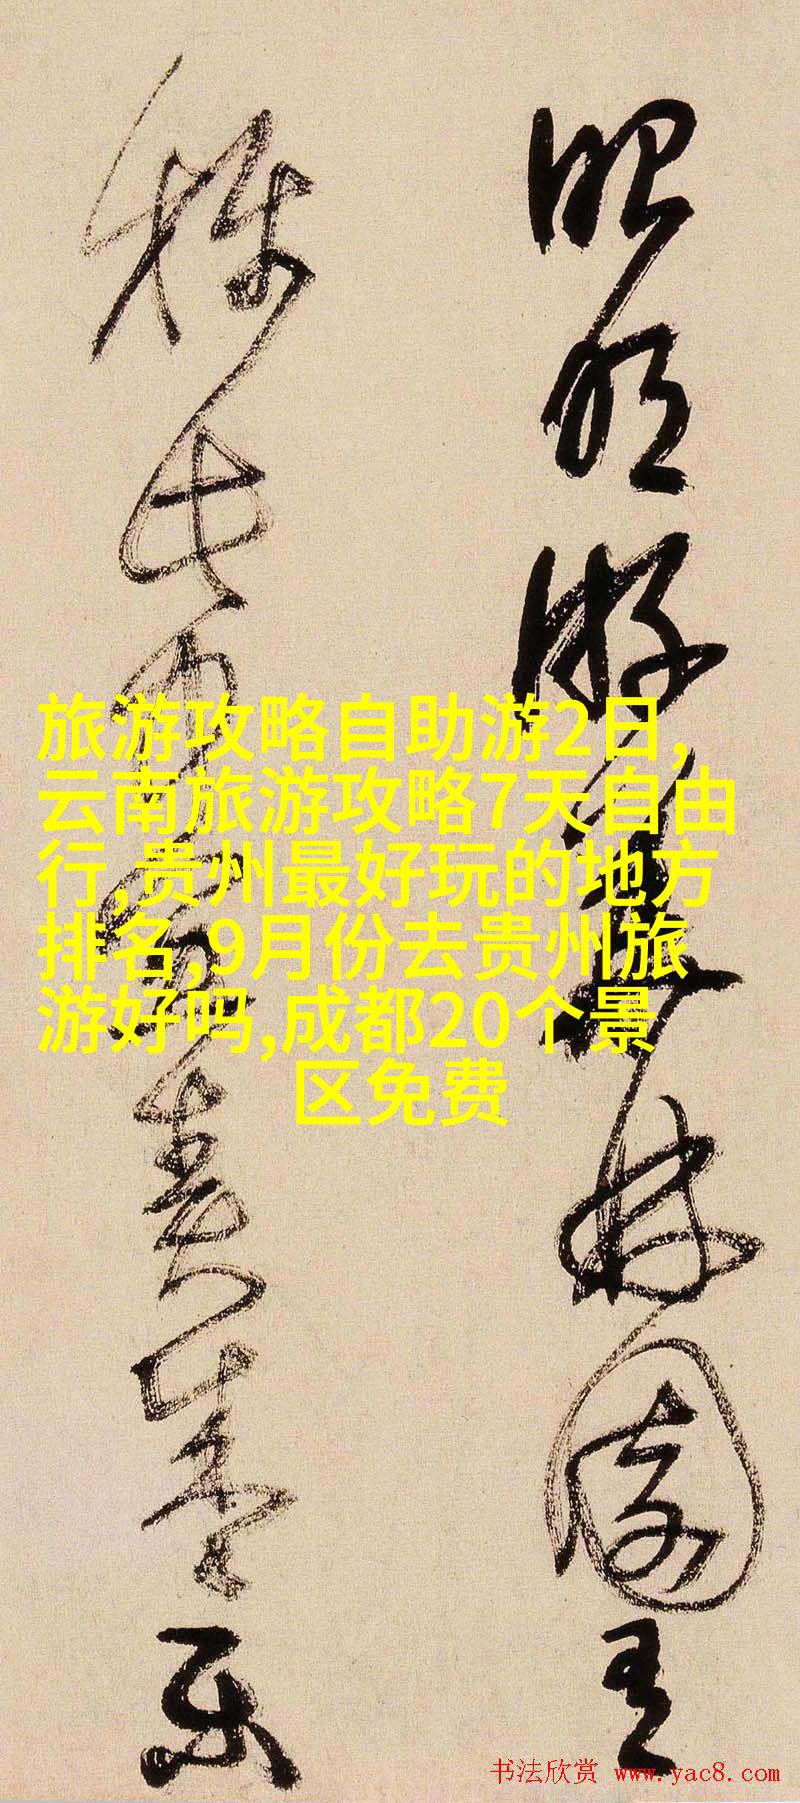 昭明游華林園有
稱此中宜奏樂
旅游攻略自助游2日,
云南旅游攻略7天自由
行,贵州最好玩的地方
排名,9月份去贵州旅
游好吗,成都20个景
区免费
书法欣赏 www.yac8.com